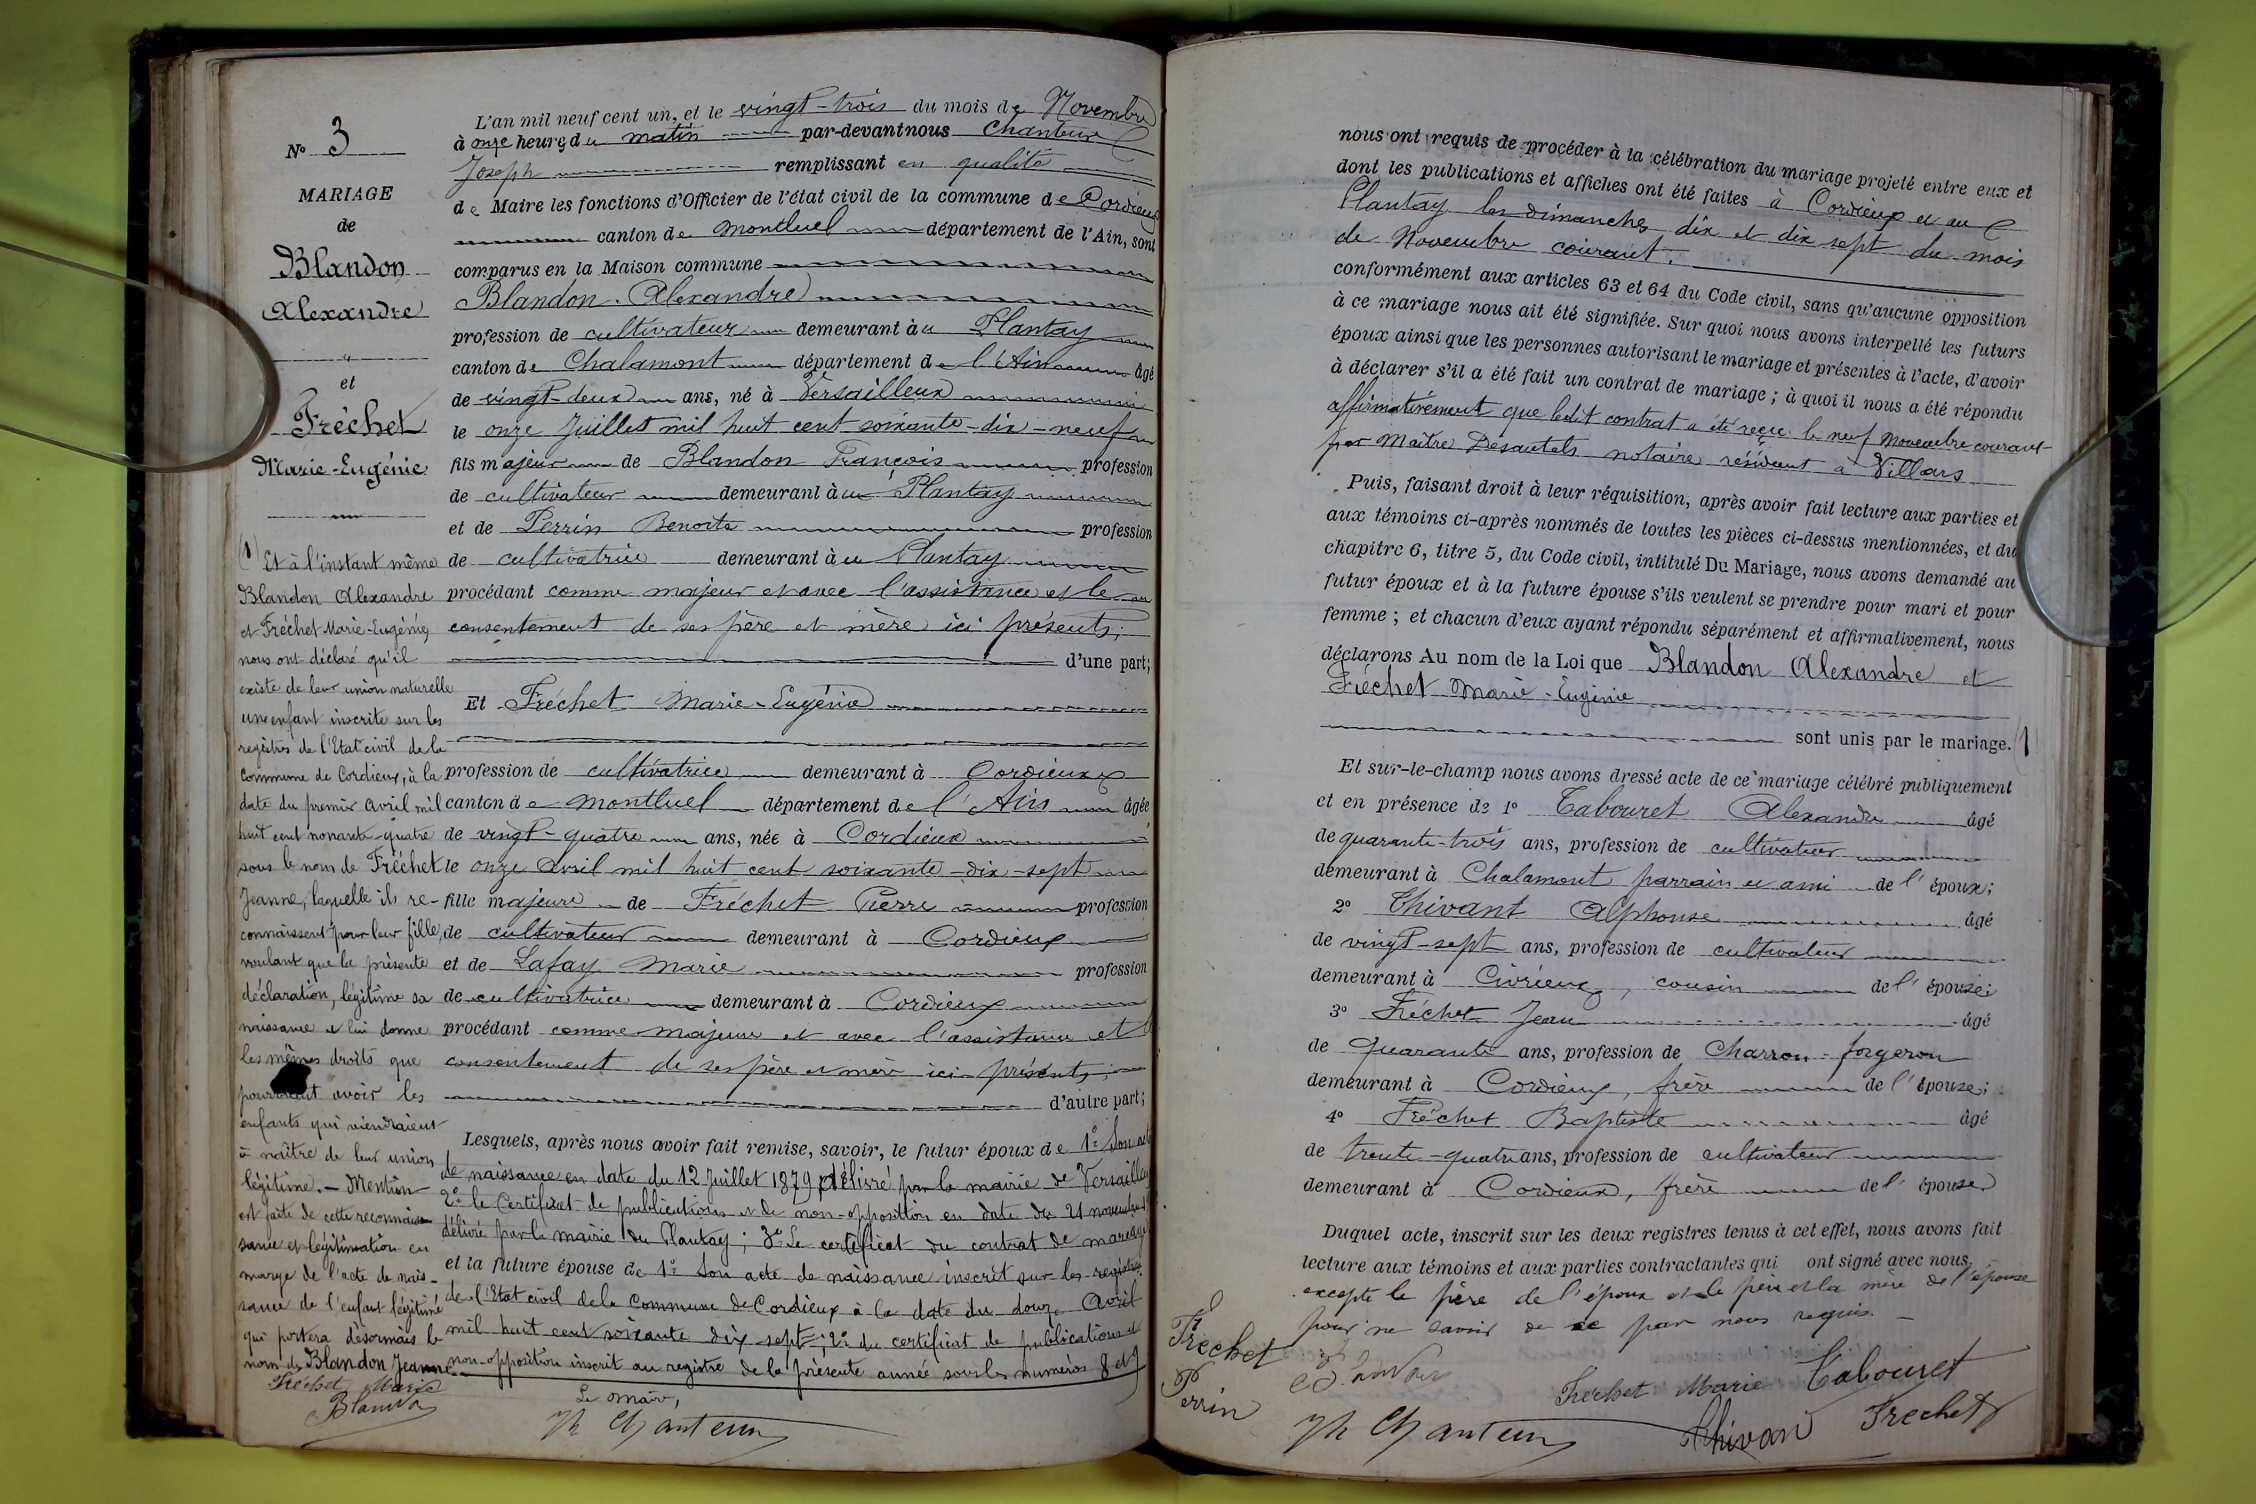 N° 3
MARIAGE
de
Blandon
Alexandre
"
et
Fréchet
Marie-Eugénie
(1) Et à l'instant même
Blandon Alexandre
et Fréchet Marie-Eugénie,
nous ont déclaré qu'il
existe de leur union naturelle
une enfant inscrite sur les
registres de l'Etat civil de la
Commune de Cordieux, à la
date du premier avril mil
huit cent nonante-quatre
sous le nom de Fréchet
Jeanne, laquelle ils re-
connaissent pour leur fille,
voulant que la présente
déclaration, légitime sa
naissance et lui donne
les mêmes droits que
pourraient avoir les
enfants qui viendraient
à naître de leur union
légitime. — Mention
est faite de cette reconnais
sance et légitimation en
marge de l'acte de nais-
sance de l'enfant légitimé
qui portera désormais le
nom de Blandon Jeanne
Fréchet Marie
Blandon
L'an mil neuf cent un, et le vingt-trois du mois de Novembre
à onze heures du matin par-devant nous Chanteur
Joseph remplissant en qualité
de Maire les fonctions d'Officier de l'état civil de la commune de Cordieux
canton de Montluel département de l'Ain, sont
comparus en la Maison commune
Blandon Alexandre
profession de cultivateur demeurant au Plantay
canton de Chalamont département de l'Ain âgé
de vingt-deux ans, né à Versailleux
le onze Juillet mil huit cent soixante-dix-neuf
fils majeur de Blandon François profession
de cultivateur demeurant à au Plantay
et de Perrin Benoite profession
de cultivatrice demeurant à au Plantay
procédant comme majeur et avec l'assistance et le
consentement de ses père et mère ici présents;
d'une part;
Et Fréchet Marie-Eugénie
profession de cultivatrice demeurant à Cordieux
canton de Montluel département de l'Ain âgée
de vingt-quatre ans, née à Cordieux
le onze Avril mil huit cent soixante-dix-sept
fille majeure de Fréchet Pierre profession
de cultivateur demeurant à Cordieux
et de Lafay Marie profession
de cultivatrice demeurant à Cordieux
procédant comme majeure et avec l'assistance et
consentement de ses père et mère ici présents;
d'autre part;
Lesquels, après nous avoir fait remise, savoir, le futur époux de 1° Son acte
de naissance en date du 12 Juillet 1879 délivré par la mairie de Versailleux
2° le Certificat de publications et de non-opposition en date du 21 novembre
délivré par la mairie du Plantay; 3° Le certificat du contrat de mariage
et la future épouse de 1° Son acte de naissance inscrit sur les registres
de l'Etat civil de la Commune de Cordieux à la date du douze Avril
mil huit cent soixante dix-sept; 2° du certificat de publications et
non-opposition inscrit au registre de la présente année sous les numéros 8 et 9
Le Maire,
Jh Chanteur
nous ont requis de procéder à la célébration du mariage projeté entre eux et
dont les publications et affiches ont été faites à Cordieux et au
Plantay les dimanches dix et dix sept du mois
de Novembre courant.
conformément aux articles 63 et 64 du Code civil, sans qu'aucune opposition
à ce mariage nous ait été signifiée. Sur quoi nous avons interpellé les futurs
époux ainsi que les personnes autorisant le mariage et présentes à l'acte, d'avoir
à déclarer s'il a été fait un contrat de mariage ; à quoi il nous a été répondu
affirmativement que ledit contrat a été reçu le neuf Novembre courant
par Maître Desautels notaire résidant à Villars
Puis, faisant droit à leur réquisition, après avoir fait lecture aux parties et
aux témoins ci-après nommés de toutes les pièces ci-dessus mentionnées, et du
chapitre 6, titre 5, du Code civil, intitulé Du Mariage, nous avons demandé au
futur époux et à la future épouse s'ils veulent se prendre pour mari et pour
femme ; et chacun d'eux ayant répondu séparément et affirmativement, nous
déclarons Au nom de la Loi que Blandon Alexandre et
Fréchet Marie-Eugénie
sont unis par le mariage. (1
Et sur-le-champ nous avons dressé acte de ce mariage célébré publiquement
et en présence de 1° Tabouret Alexandre âgé
de quarante-trois ans, profession de cultivateur
demeurant à Chalamont parrain et ami de l'époux;
2° Thivant Alphonse âgé
de vingt-sept ans, profession de cultivateur
demeurant à Civrieux, cousin de l'épouse;
3° Fréchet Jean âgé
de quarante ans, profession de Charron-forgeron
demeurant à Cordieux, frère de l'épouse;
4° Fréchet Baptiste âgé
de trente-quatre ans, profession de cultivateur
demeurant à Cordieux, frère de l'épouse
Duquel acte, inscrit sur les deux registres tenus à cet effet, nous avons fait
lecture aux témoins et aux parties contractantes qui ont signé avec nous,
excepté le père de l'époux et le père et la mère de l'épouse
pour ne savoir de ce par nous requis.
Fréchet
Perrin
Blandon
Frechet Marie
Tabouret
Jh Chanteur
Thivan
Frechet